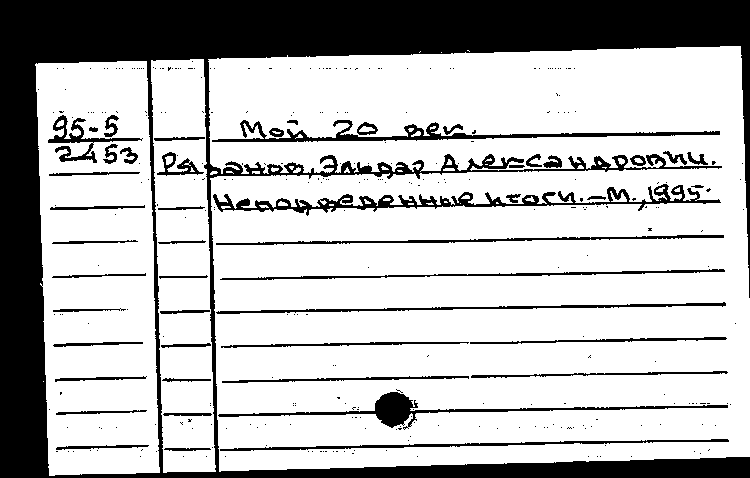 95-5 Мой 20 век.
2453 Рязанов, Эльдар Александрович.
Неподведенные итоги. – М., 1995.